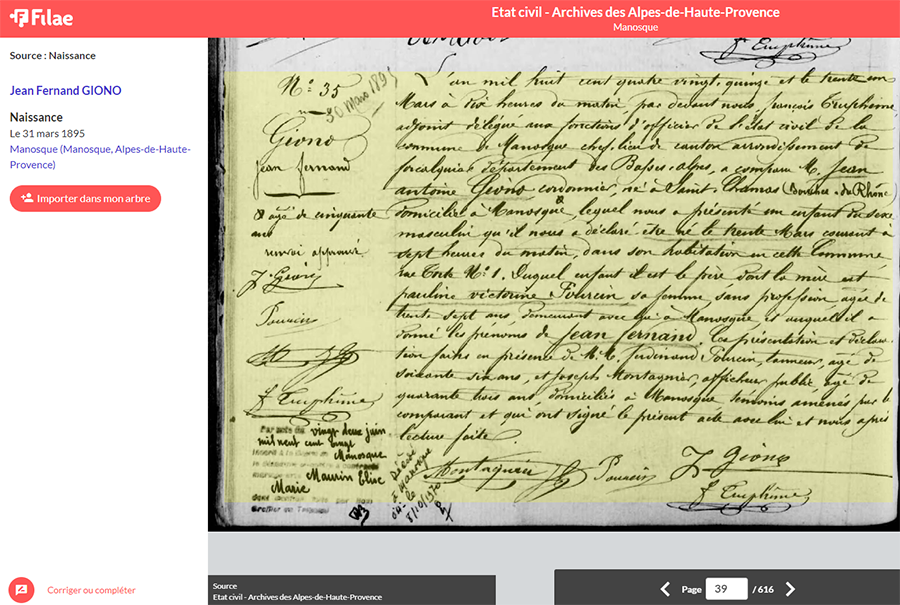 Filae
Etat civil - Archives des Alpes-de-Haute-Provence
Manosque
Source : Naissance
Jean Fernand GIONO
Naissance
Le 31 mars 1895
Manosque (Manosque, Alpes-de-Haute-
Provence)
Importer dans mon arbre
N° 35
30 Mars 1895
Giono
jean fernand
âgé de cinquante
ans
renvoi approuvé
J Giono
Pourcin
f Truphème
Par acte du vingt deux juin
mil neuf cent vingt
Manosque
Maurin Elise
Marie
Décédé
à Manosque
le
8/10/1970
f Truphème
L'an mil huit cent quatre vingt quinze et le trente un
Mars à dix heures du matin par devant nous françois Truphème
adjoint délégué aux fonctions d'officier de l'état civil de la
commune de Manosque chef lieu de canton arrondissement de
forcalquier département des Basses alpes, a comparu M. Jean
antoine Giono cordonnier, né à Saint Chamas (Bouches-du-Rhône)
domicilié à Manosque, lequel nous a présenté un enfant du sexe
masculin qu'il nous a déclaré être né le trente Mars courant à
sept heures du matin, dans son habitation en cette Commune
rue Torte N° 1. Duquel enfant il est le père dont la mère est
pauline victorine Pourcin sa femme, sans profession agée de
trente sept ans demeurant avec lui à Manosque et auquel il a
donné les prénoms de jean fernand. Ces présentation et déclara-
tion faites en présence de M.M. ferdinand Pourcin, tanneur, agé de
soixante six ans, et joseph Montagnier, afficheur public agé de
quarante trois ans, domiciliés à Manosque témoins amenés par le
comparant et qui ont signé le présent acte avec lui et nous après
lecture faite.
Montagnier Pourcin J Giono
f Truphème
Corriger ou compléter
Source
Etat civil - Archives des Alpes-de-Haute-Provence
Page 39 / 616